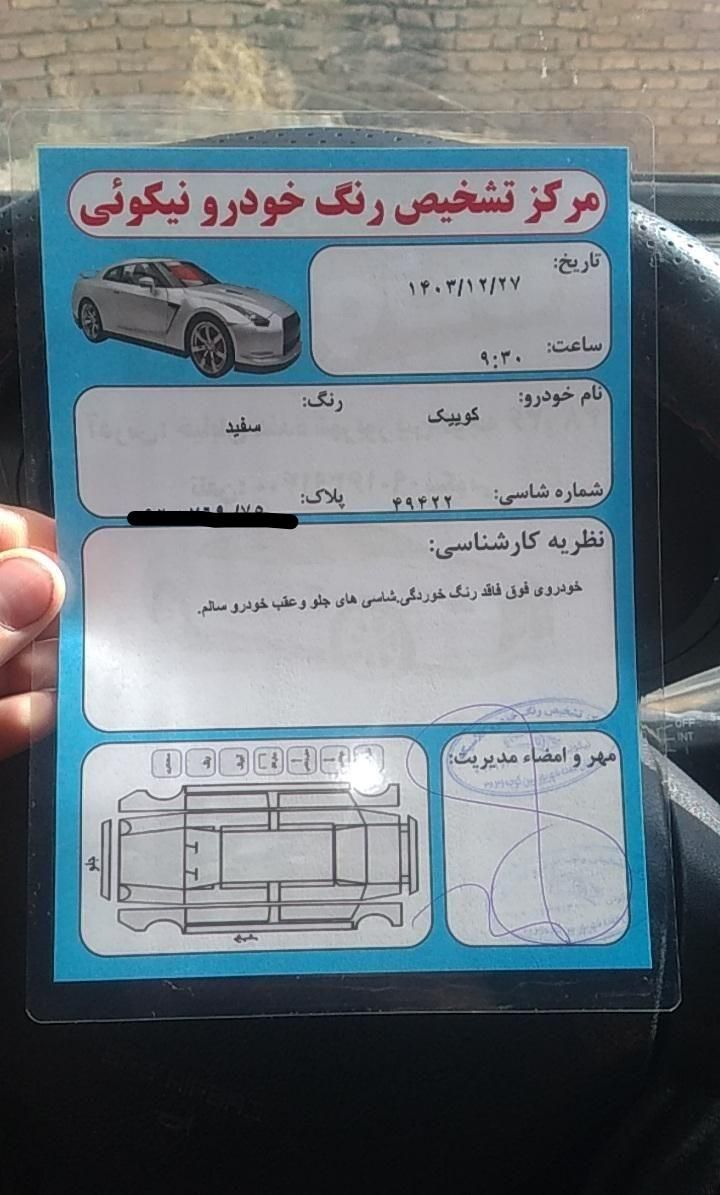 مرکز تشخیص رنگ خودرو نیکوئی
تاریخ:
۱۴۰۳/۱۲/۲۷
ساعت:
۹:۳۰
نام خودرو:
کوییک
رنگ:
سفید
شماره شاسی:
۴۹۴۲۲
پلاک:
نظریه کارشناسی:
خودروی فوق فاقد رنگ خوردگی.شاسی های جلو وعقب خودرو سالم.
مهر و امضاء مدیریت:
جلو
OFF
INT